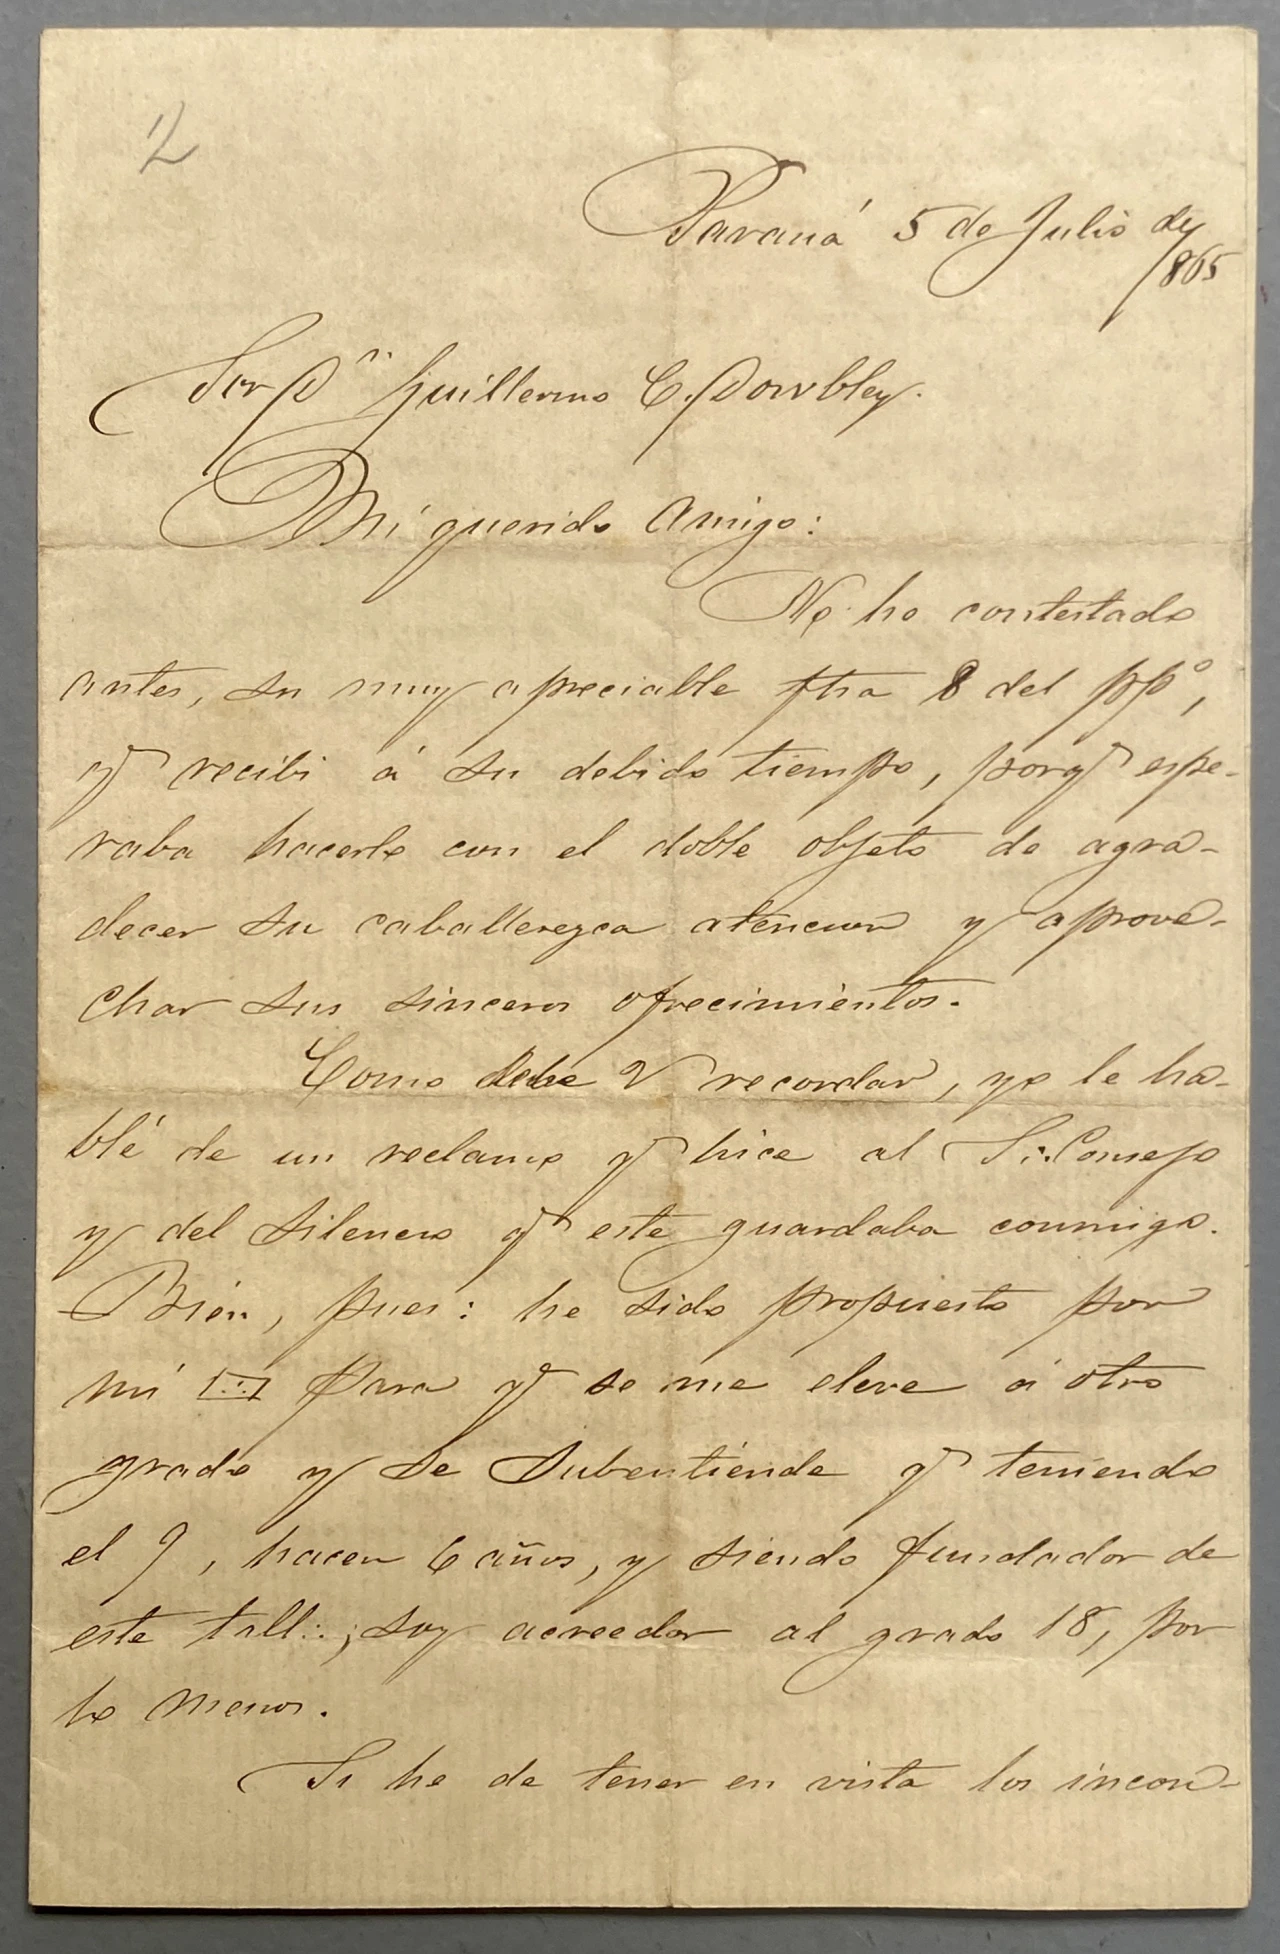 2
Paraná 5 de Julio de
1865
Sor Dn Guillermo C. Dowbley.
Mi querido Amigo:
No he contestado
antes, su muy apreciable fha 8 del ppo,
q recibi á su debido tiempo, porq espe-
raba hacerlo con el doble objeto de agra-
decer su caballerezca atencion y aprove-
char sus sinceros ofrecimientos.
Como debe V recordar, yo le ha-
blé de un reclamo q hice al S∴ Consejo
y del silencio q este guardaba conmigo.
Bien, pues: he sido propuesto por
mi [∴] para q se me eleve á otro
grado y se subentiende q teniendo
el 9, hacen 6 años, y siendo fundador de
este tall∴; soy acreedor al grado 18, por
lo menos.
Si he de tener en vista los incon-